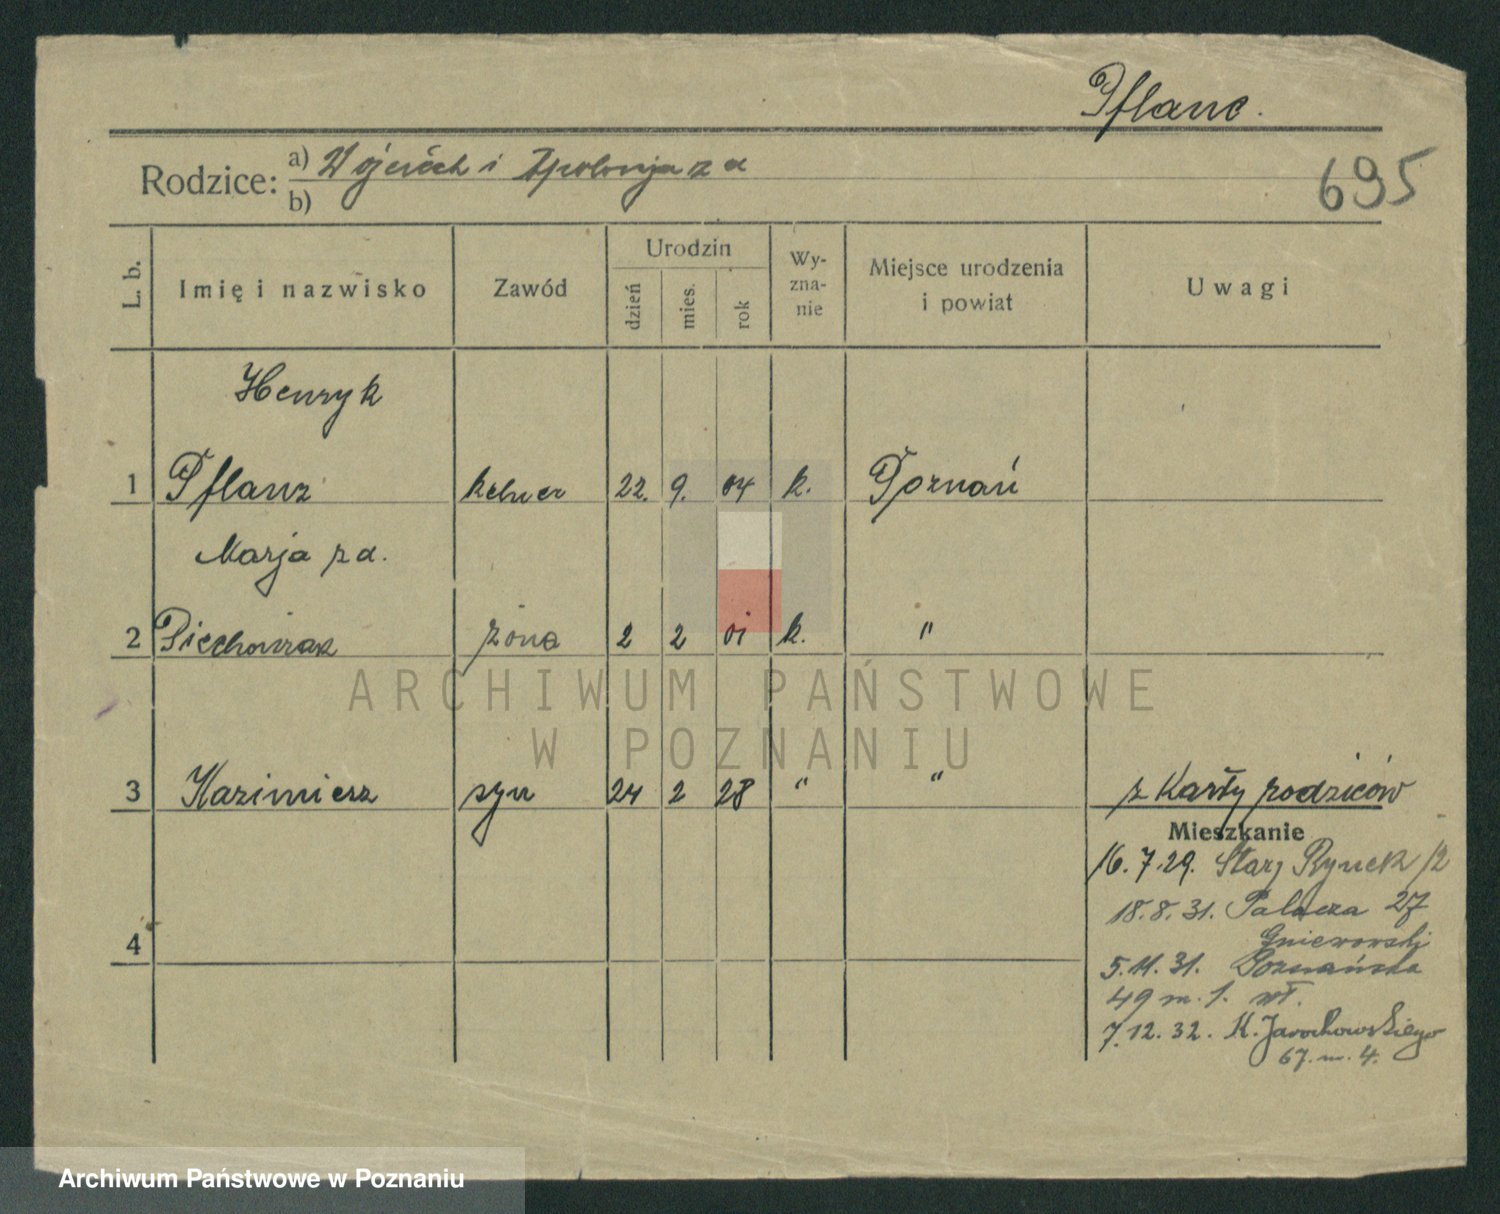 Pflanc.
695
Rodzice: a) Wojciech i Apolonja z d
b)
L. b.
Imię i nazwisko
Zawód
Urodzin
dzień
mies.
rok
Wy-
zna-
nie
Miejsce urodzenia
i powiat
Uwagi
Henryk
1 Pflanz kelner 22. 9. 04 k. Poznań
Marja z d.
2 Piechowiak żona 2 2 01 k. "
3 Kazimierz syn 24 2 28 " " z karty rodziców
Mieszkanie
16.7.29. Stary Rynek 12
18.8.31. Palacza 27
4
Gniewowski
5.11.31. Poznańska
49 m. 1. wł.
7.12.32. K. Jarochowskiego
67. m. 4.
ARCHIWUM PAŃSTWOWE
W POZNANIU
Archiwum Państwowe w Poznaniu